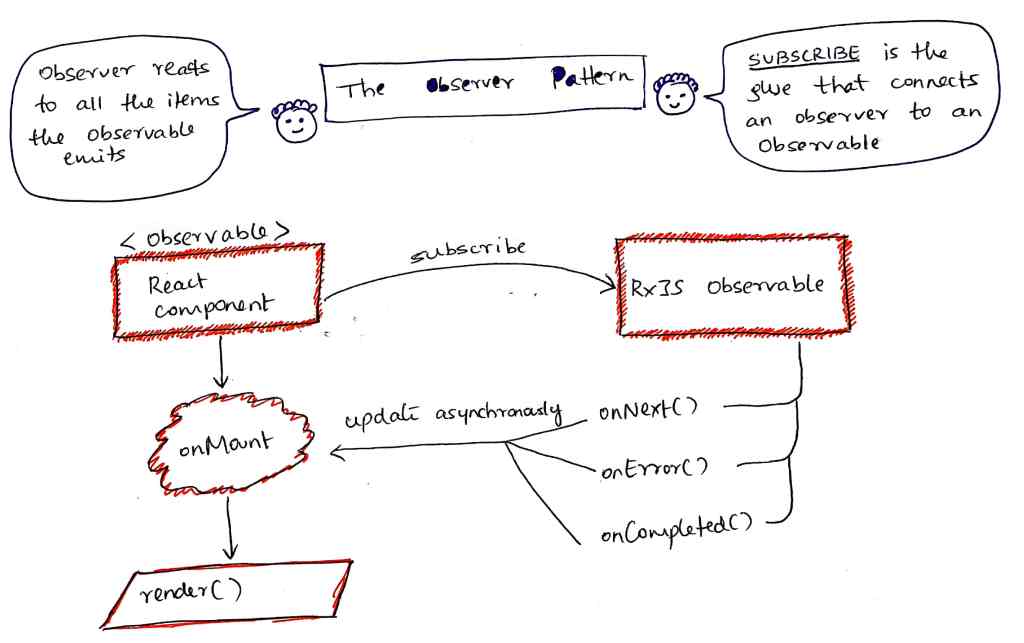 Observer reacts
to all the items
the observable
emits
The Observer Pattern
SUBSCRIBE is the
glue that connects
an observer to an
Observable
< Observable >
React
component
subscribe
RxJS Observable
onMount
update asynchronously
onNext()
onError()
onCompleted()
render()